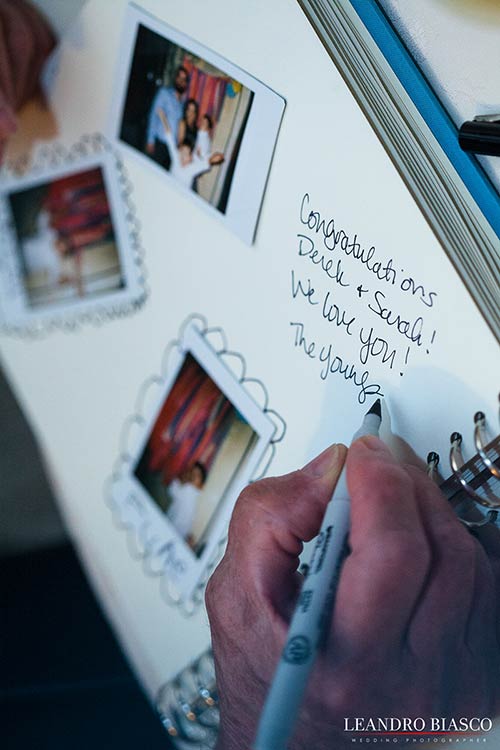 Congratulations
Derek + Sarah!
We love you!
The Youngs
LEANDRO BIASCO
WEDDING PHOTOGRAPHER